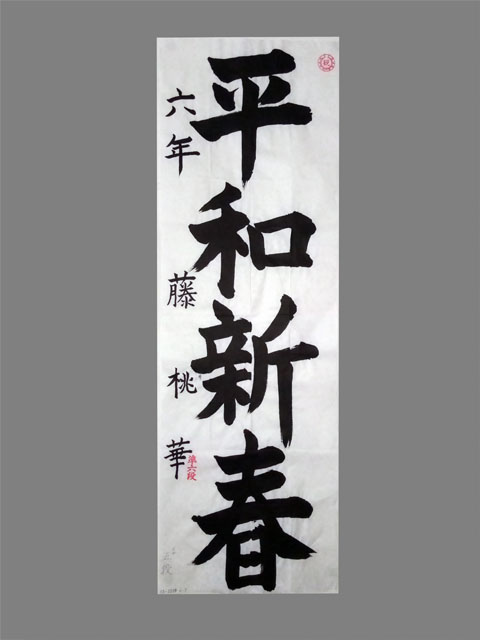 平和新春
六年 藤 桃 華
準六段